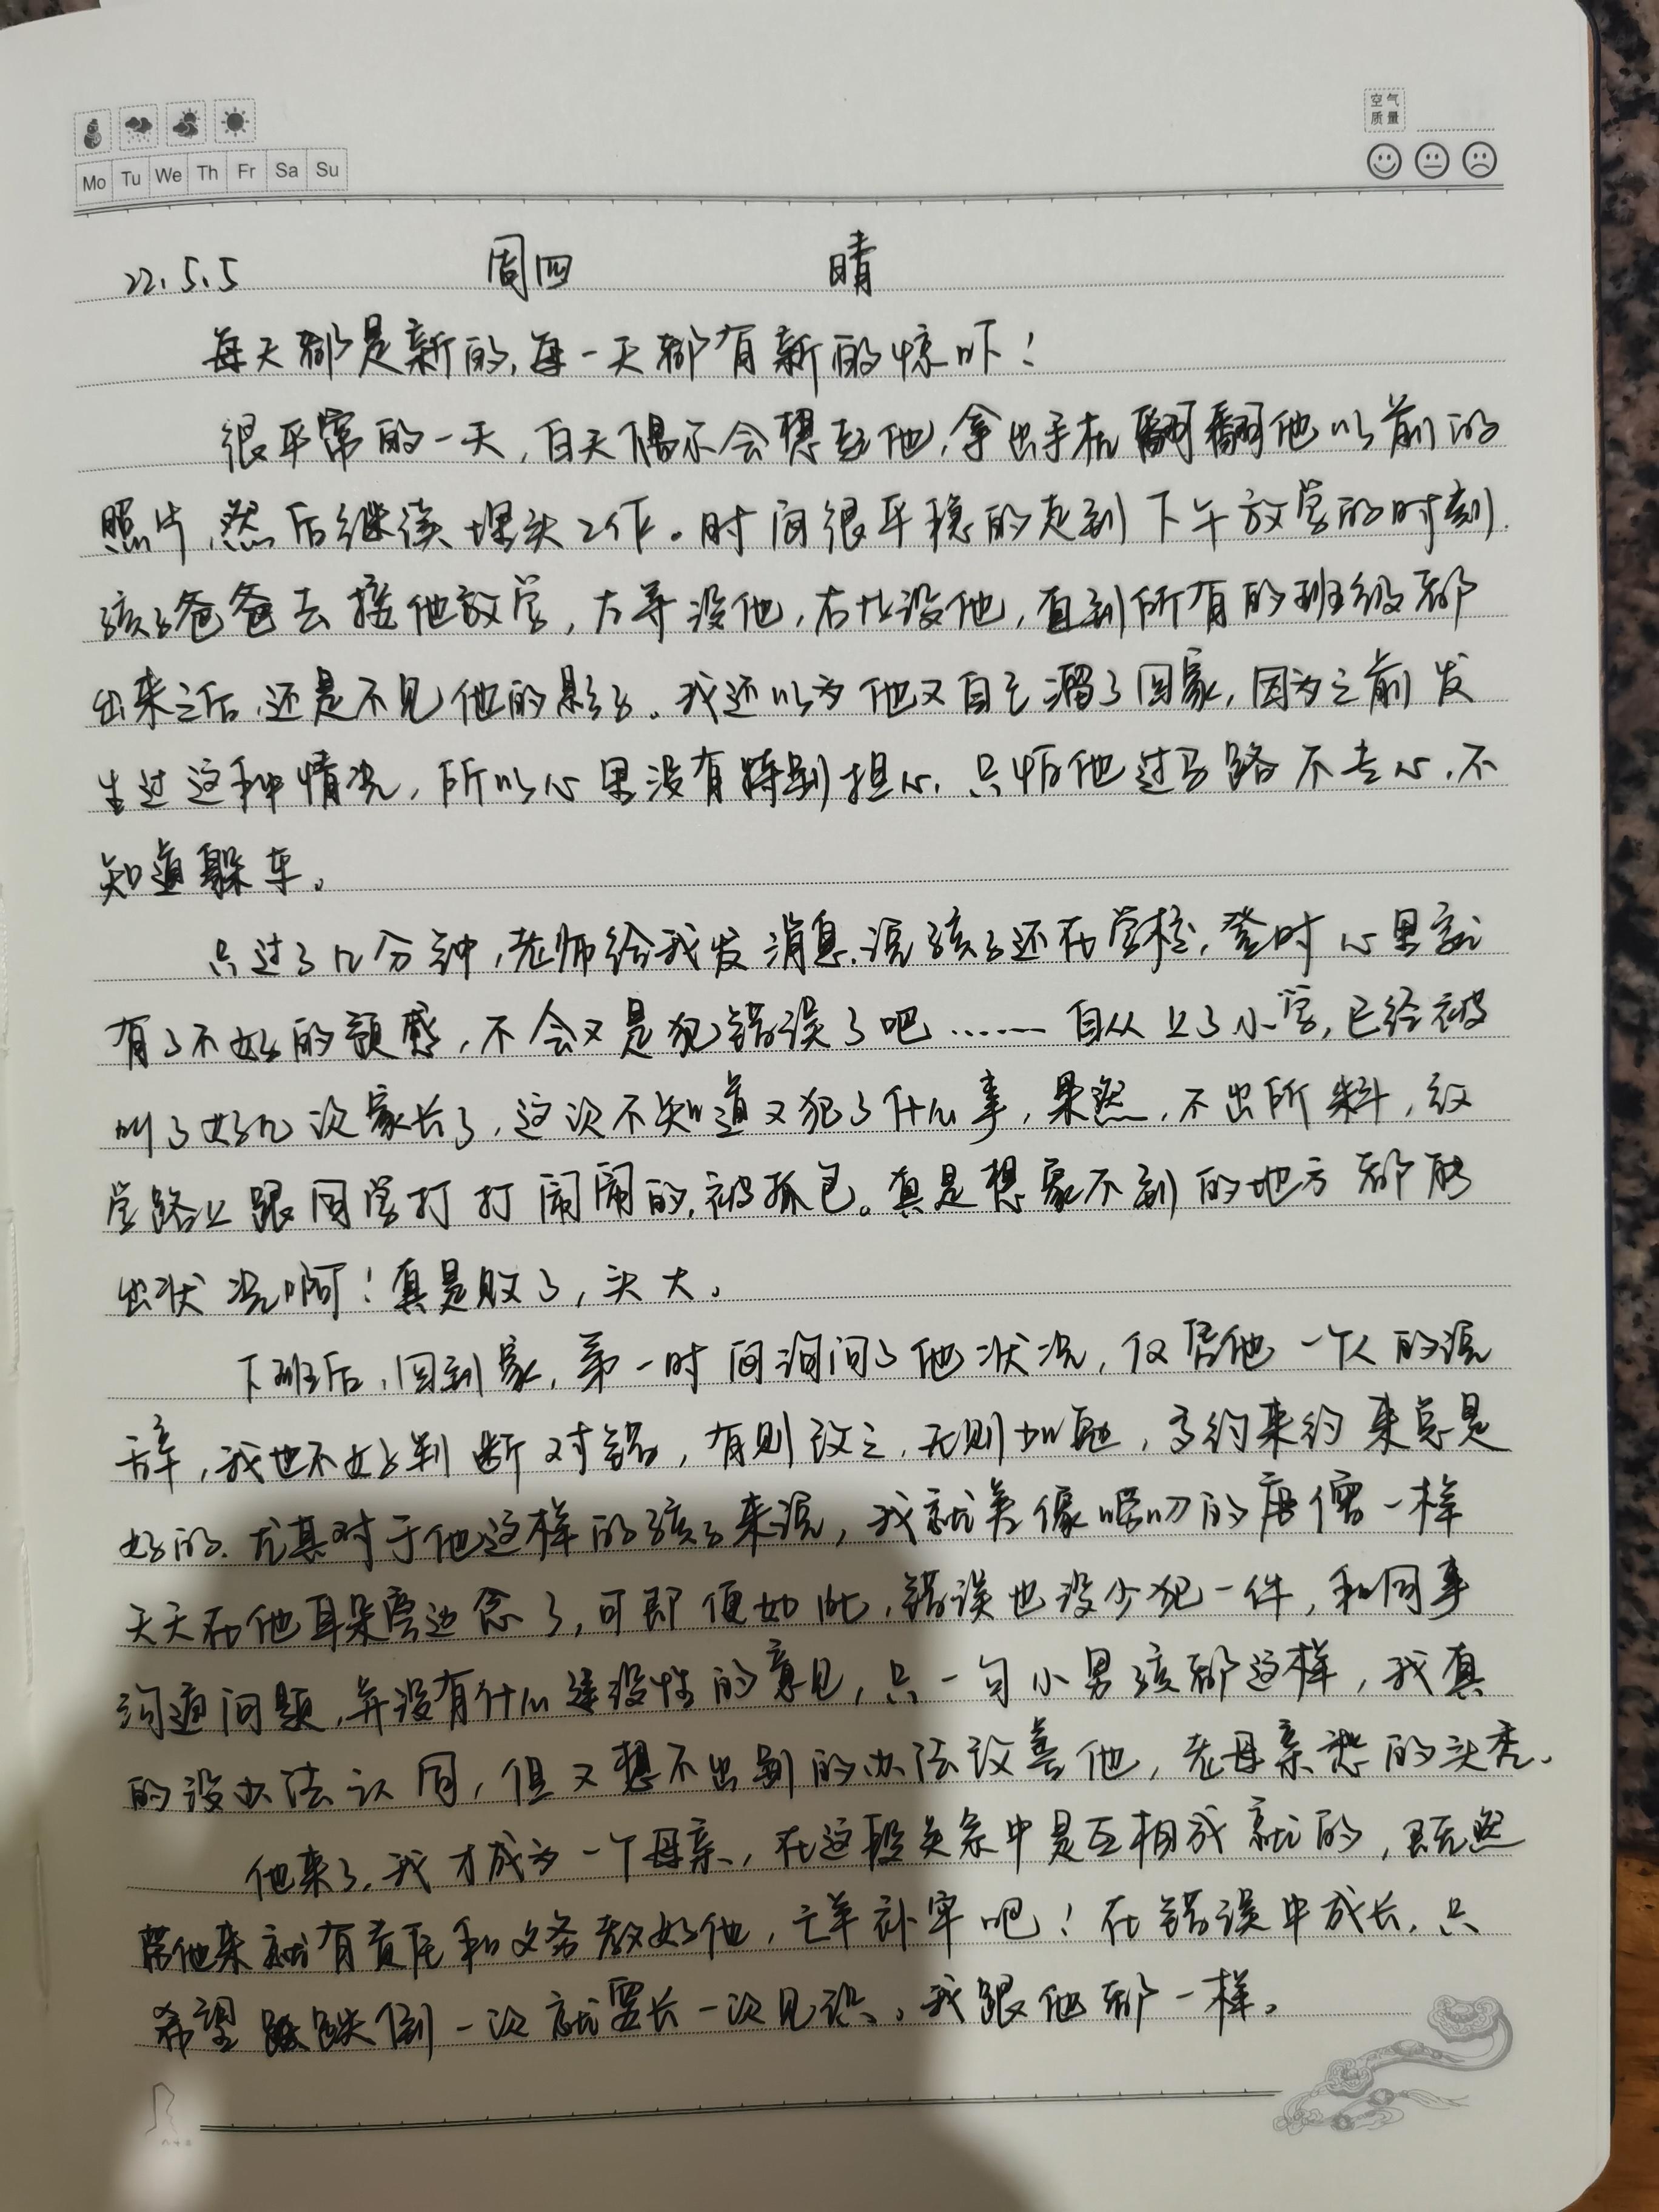 空气
质量
Mo Tu We Th Fr Sa Su
22.5.5 周四 晴
每天都是新的,每一天都有新的惊吓!
很平常的一天,白天偶尔会想起他,拿出手机翻翻他以前的
照片,然后继续埋头工作。时间很平稳的走到下午放学的时刻.
孩子爸爸去接他放学,左等没他,右忙没他,直到所有的班级都
出来之后,还是不见他的影子。我还以为他又自己溜了回家,因为之前发
生过这种情况,所以心里没有特别担心,只怕他过马路不专心,不
知道躲车。
只过了几分钟,老师给我发消息,说孩子还在学校,登时心里就
有了不好的预感,不会又是犯错误了吧……自从上了小学,已经被
叫了好几次家长了,这次不知道又犯了什么事,果然,不出所料,放
学路上跟同学打打闹闹的,被抓包。真是想象不到的地方都能
出状况啊!真是败了,头大。
下班后,回到家,第一时间询问了他状况,仅凭他一个人的说
辞,我也不好判断对错,有则改之,无则加勉,多约束约束总是
好的.尤其对于他这样的孩子来说,我就差像唠叨的唐僧一样
天天在他耳朵旁边念了,可即便如此,错误也没少犯一件,和同事
沟通问题,并没有什么建设性的意见,只一句小男孩都这样,我真
的没办法认同,但又想不出别的办法改善他,老母亲愁的头秃.
他来了,我才成为一个母亲,在这段关系中是互相成就的,既然
带他来就有责任和义务教好他,亡羊补牢吧!在错误中成长,只
希望跌倒一次就要长一次见识。我跟他都一样。